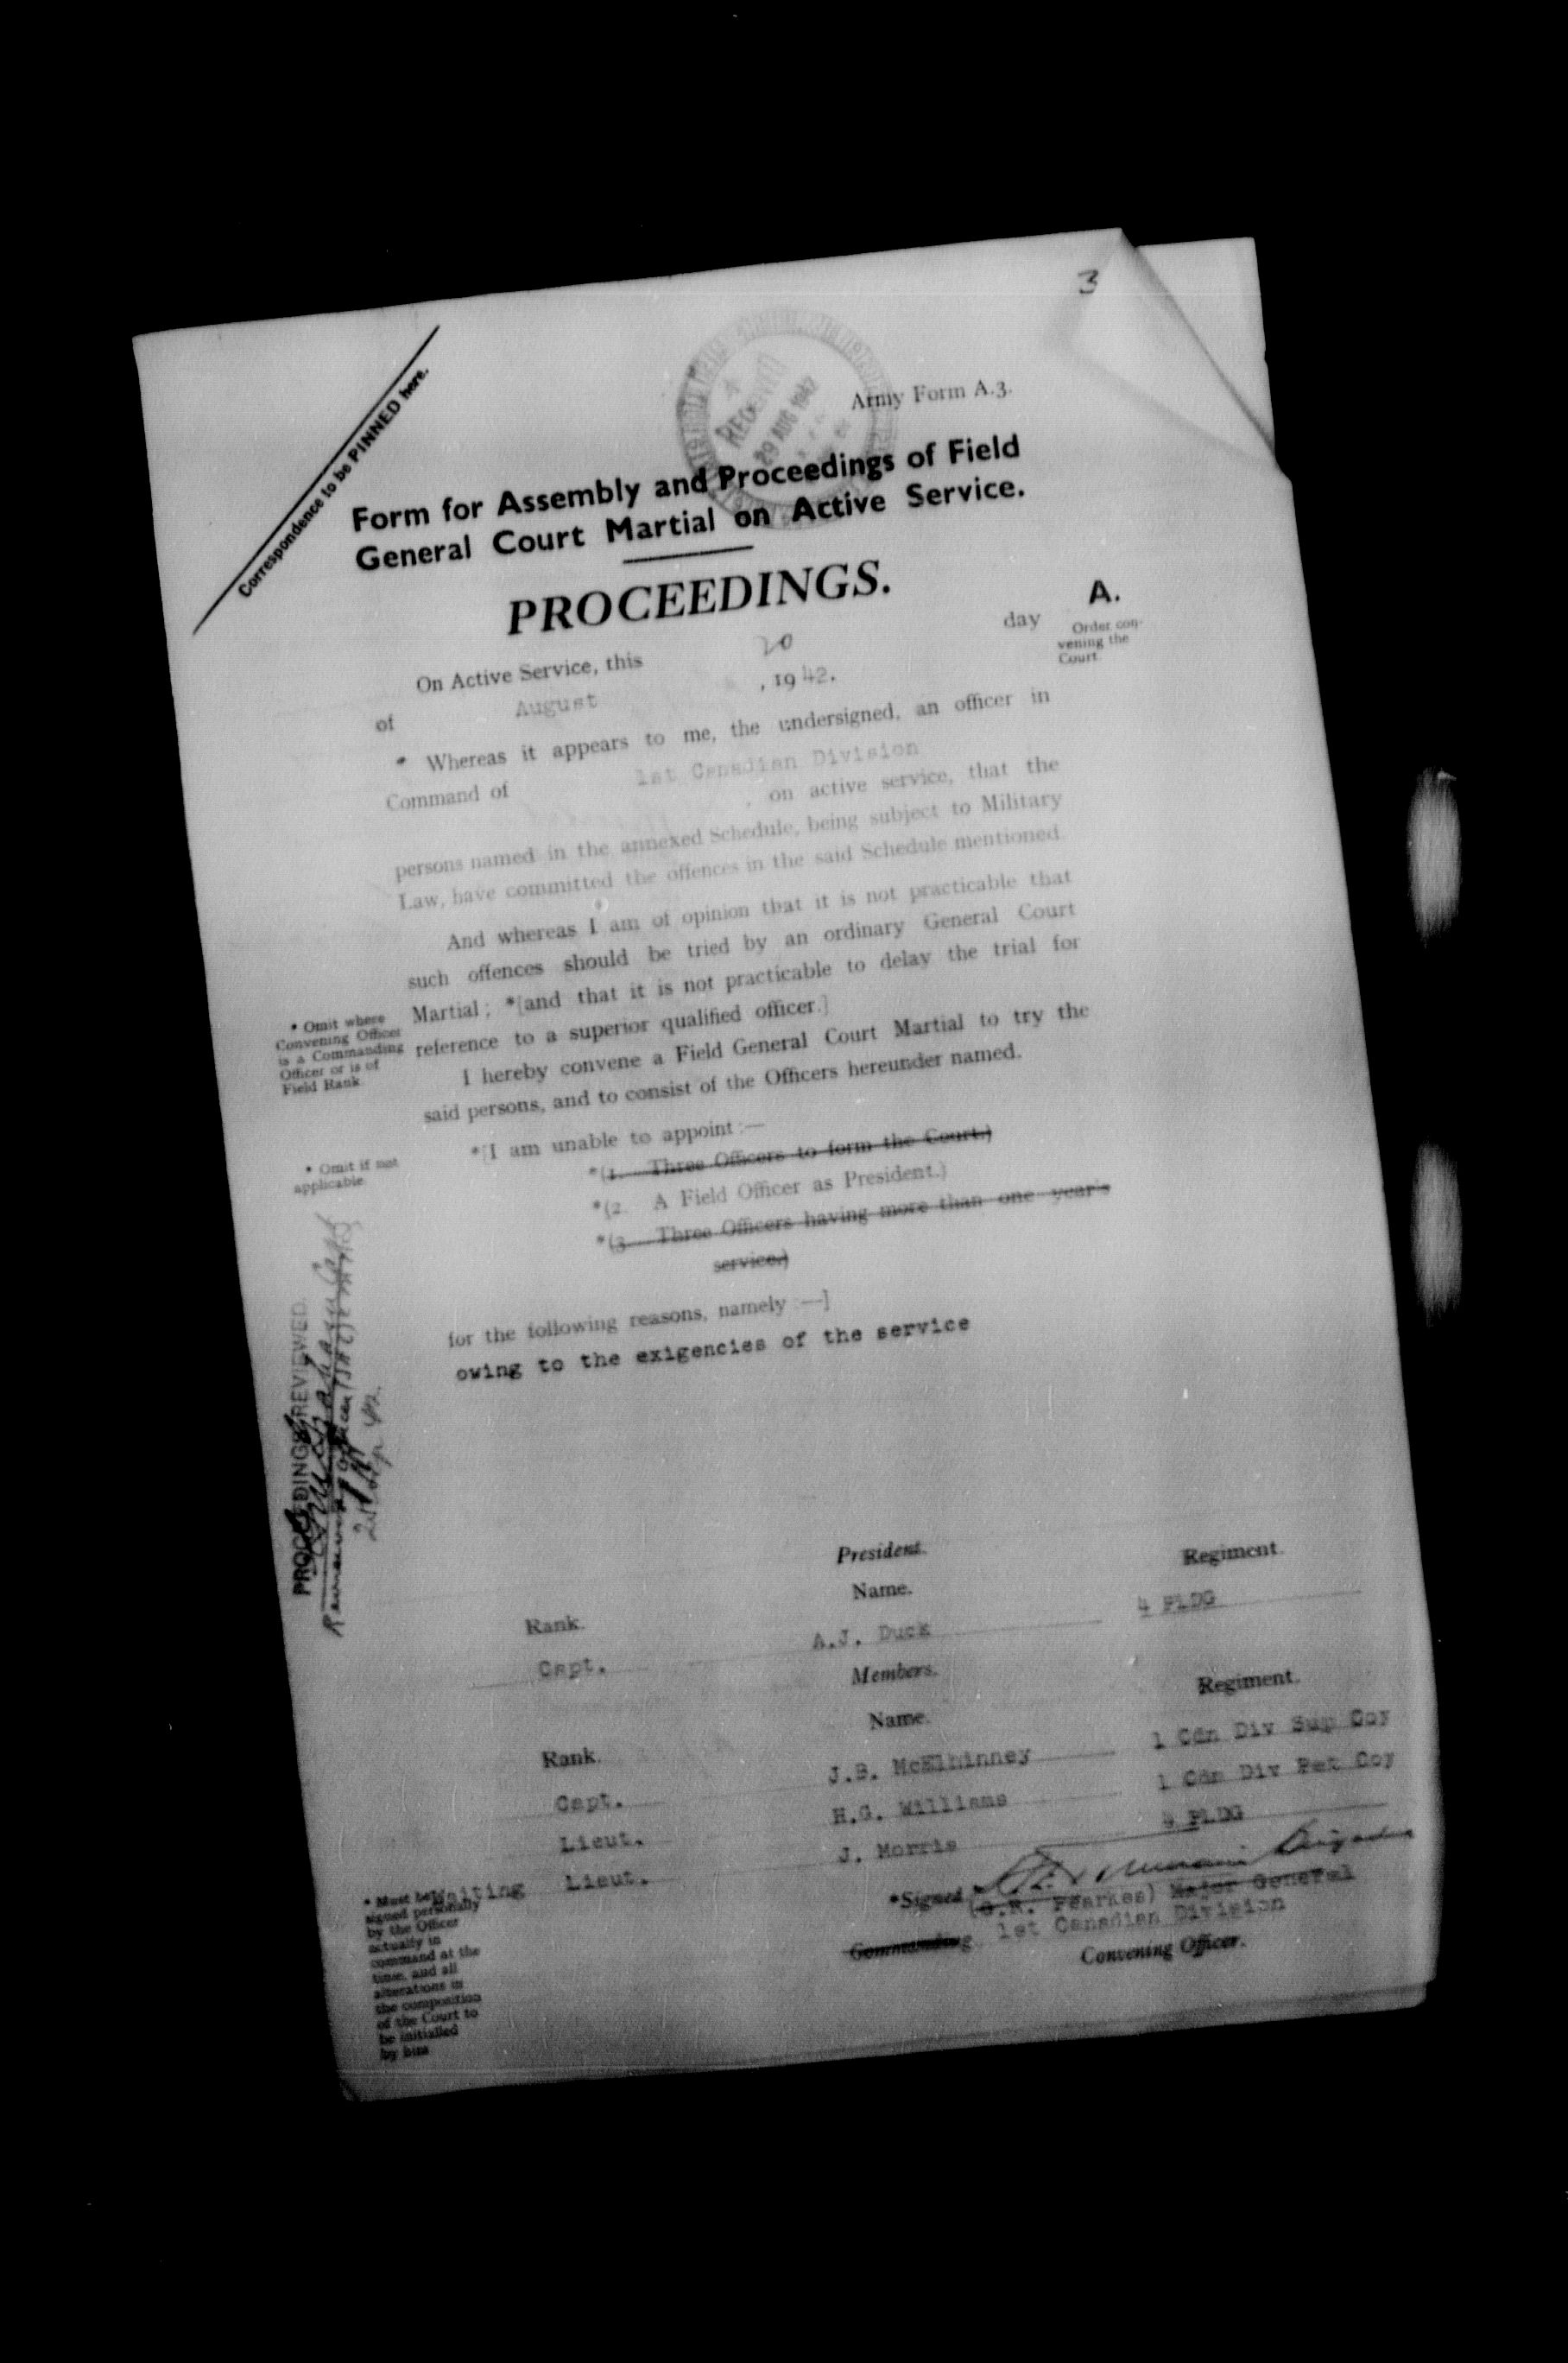 3
Correspondence to be PINNED here.
RECEIVED
29 AUG 1942
Army Form A.3.
Form for Assembly and Proceedings of Field
General Court Martial on Active Service.
PROCEEDINGS.
A.
Order con-
vening the
Court.
On Active Service, this 20 day
of August , 1942.
* Whereas it appears to me, the undersigned, an officer in
Command of 1st Canadian Division
, on active service, that the
persons named in the annexed Schedule, being subject to Military
Law, have committed the offences in the said Schedule mentioned.
And whereas I am of opinion that it is not practicable that
such offences should be tried by an ordinary General Court
Martial ; *[and that it is not practicable to delay the trial for
reference to a superior qualified officer.]
* Omit where
Convening Officer
is a Commanding
Officer or is of
Field Rank
I hereby convene a Field General Court Martial to try the
said persons, and to consist of the Officers hereunder named.
*[I am unable to appoint :—
* Omit if not
applicable
*(1. Three Officers to form the Court.)
*(2. A Field Officer as President.)
*(3. Three Officers having more than one year's
service.)
for the following reasons, namely :—]
owing to the exigencies of the service
PROCEEDINGS REVIEWED.
President.
Rank. Name. Regiment.
Capt. A.J. Duck 4 PLDG
Members.
Rank. Name. Regiment.
Capt. J.B. McElhinney 1 Cdn Div Sup Coy
Lieut. H.G. Williams 1 Cdn Div Pet Coy
Waiting Lieut. J. Morris 4 PLDG
*Signed
(G.R. Pearkes) Major General
Commanding 1st Canadian Division
Convening Officer.
* Must be
signed personally
by the Officer
actually in
command at the
time, and all
alterations in
the composition
of the Court to
be initialled
by him